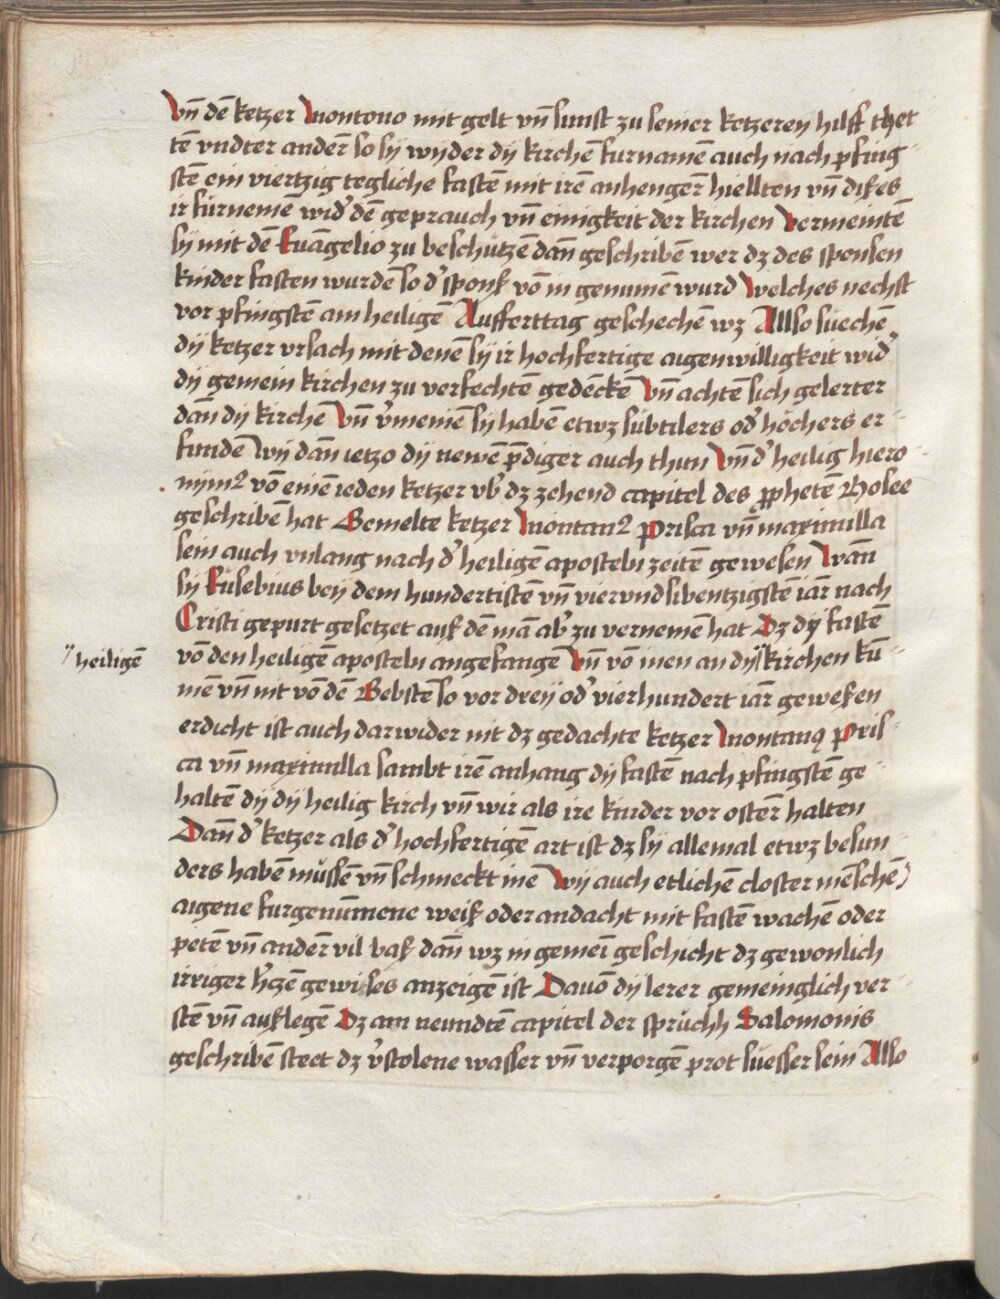 Vn̄ dē ketzer Montono mit gelt vn̄ sunst zu seiner ketzereÿ hilff thet
tē vndter ander̄ so sÿ wÿder dÿ kirchē furnamē auch nach pfing
stē ein viertzig tegliche fastē mit irē anhenger̄ hiellten vn̄ dißes
ir fürnemē wid' dē geprauch vn̄ einigkeit der kirchen Vermeintē
sÿ mit dē Euāgelio zu beschützē dan̄ geschribē wer dz des sponsen
kinder fasten wurdē so d' sponß vō in genumē wurd Welches nechst
vor pfingstē am heiligē Aufferttag geschechē wz Allso suechē
dÿ ketzer vrsach mit denē sÿ ir hochfertige aigenwilligkeit wid'
dÿ gemein kirchen zu verfechtē gedēckē Vn̄ achtē sich gelerter
dan̄ dÿ kirchē Vn̄ v'meinē sÿ habē etwz subtilers od' höchers er
fundē Wÿ dan̄ ietzo dÿ newē p̄diger auch thun Vn̄ d' heilig hiero
nÿm9 vō einē ieden ketzer vb' dz zehend capitel des ꝓphetē Hosee
geschribē hat Gemelte ketzer Montan9 Prisca vn̄ maximilla
sein auch vnlang nach d' heiligē aposteln zeitē gewesen Wan̄
sÿ Eusebius beÿ dem hundertistē vn̄ viervndsibentzigstē iar̄ nach
Cristi gepurt gesetzet auß dē mā ab' zu vernemē hat Dz dÿ fastē
vō den heiligē aposteln angefangē Vn̄ vō inen an dÿ" kirchen kū
"heiligē
mē vn̄ nit vō dē Bebstē so vor dreÿ od' vierhundert iar̄ geweßen
erdicht ist auch darwider nit dz gedachte ketzer Montanꝰ Pris
ca vn̄ maximilla sambt irē anhang dÿ fastē nach pfingstē ge
haltē dÿ dÿ heilig kirch vn̄ wir als ire kinder vor oster̄ halten
Dan̄ d' ketzer als d' hochfertigē art ist dz sÿ allemal etwz besun
ders habē müssē vn̄ schmeckt inē Wÿ auch etlichē closter mēschē
aigene furgenūmene weiß oder andacht mit fastē wachē oder
petē vn̄ ander̄ vil baß dan̄ wz in gemeī geschicht dz gewonlich
irriger h'czē gewises anzeigē ist Dauō dÿ lerer gemeinglich ver
stē vn̄ außlegē Dz am neundtē capitel der sprüchh Salomonis
geschribē steet dz v'stolene wasser vn̄ verporgē prot suesser sein Allso